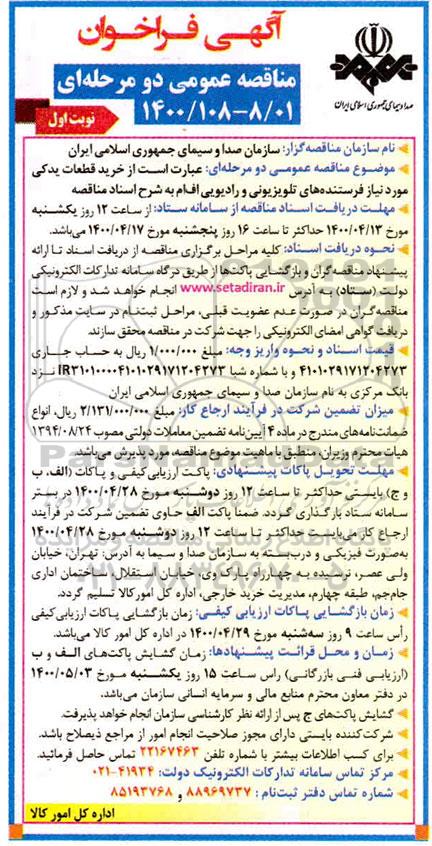 آگهی فراخوان
مناقصه عمومی دو مرحله‌ای
۱۴۰۰/۱۰۸-۸/۰۱
نوبت اول
صدا و سیمای جمهوری اسلامی ایران
نام سازمان مناقصه‌گزار: سازمان صدا و سیمای جمهوری اسلامی ایران
موضوع مناقصه عمومی دو مرحله‌ای: عبارت است از خرید قطعات یدکی
مورد نیاز فرستنده‌های تلویزیونی و رادیویی اف‌ام به شرح اسناد مناقصه
مهلت دریافت اسناد مناقصه از سامانه ستاد: از ساعت ۱۲ روز یکشنبه
مورخ ۱۴۰۰/۰۴/۱۳ حداکثر تا ساعت ۱۶ روز پنجشنبه مورخ ۱۴۰۰/۰۴/۱۷ می‌باشد.
نحوه دریافت اسناد: کلیه مراحل برگزاری مناقصه از دریافت اسناد تا ارائه
پیشنهاد مناقصه‌گران و بازگشایی پاکت‌ها از طریق درگاه سامانه تدارکات الکترونیکی
دولت (ستاد) به آدرس www.setadiran.ir انجام خواهد شد و لازم است
مناقصه‌گران در صورت عدم عضویت قبلی، مراحل ثبت‌نام در سایت مذکور و
دریافت گواهی امضای الکترونیکی را جهت شرکت در مناقصه محقق سازند.
قیمت اسناد و نحوه واریز وجه: مبلغ ۱/۰۰۰/۰۰۰ ریال به حساب جاری
۴۱۰۱۰۲۹۱۷۱۲۰۴۲۷۳ و با شماره شبا IR۳۱۰۱۰۰۰۰۴۱۰۱۰۲۹۱۷۱۲۰۴۲۷۳ نزد
بانک مرکزی به نام سازمان صدا و سیمای جمهوری اسلامی ایران
میزان تضمین شرکت در فرآیند ارجاع کار: مبلغ ۲/۱۳۱/۰۰۰/۰۰۰ ریال، انواع
ضمانت‌نامه‌های مندرج در ماده ۴ آیین‌نامه تضمین معاملات دولتی مصوب ۱۳۹۴/۰۸/۲۴
هیات محترم وزیران، منطبق با ماهیت موضوع مناقصه مورد پذیرش می‌باشد.
مهلت تحویل پاکات پیشنهادی: پاکت ارزیابی کیفی و پاکات (الف، ب
و ج) بایستی حداکثر تا ساعت ۱۲ روز دوشنبه مورخ ۱۴۰۰/۰۴/۲۸ در بستر
سامانه ستاد بارگذاری گردد. ضمنا پاکت الف حاوی تضمین شرکت در فرآیند
ارجاع کار می‌بایست حداکثر تا ساعت ۱۲ روز دوشنبه مورخ ۱۴۰۰/۰۴/۲۸
به‌صورت فیزیکی و دربسته به سازمان صدا و سیما به آدرس: تهران، خیابان
ولی عصر، نرسیده به چهارراه پارک‌وی، خیابان استقلال، ساختمان اداری
جام‌جم، طبقه چهارم، مدیریت خرید خارجی، اداره کل امور کالا تسلیم گردد.
زمان بازگشایی پاکات ارزیابی کیفی: زمان بازگشایی پاکات ارزیابی کیفی
رأس ساعت ۹ روز سه‌شنبه مورخ ۱۴۰۰/۰۴/۲۹ در اداره کل امور کالا می‌باشد.
زمان و محل قرائت پیشنهادها: زمان گشایش پاکت‌های الف و ب
(ارزیابی فنی بازرگانی) راس ساعت ۱۵ روز یکشنبه مورخ ۱۴۰۰/۰۵/۰۳
در دفتر معاون محترم منابع مالی و سرمایه انسانی سازمان می‌باشد.
گشایش پاکت‌های ج پس از ارائه نظر کارشناسی سازمان انجام خواهد پذیرفت.
شرکت‌کننده بایستی دارای مجوز صلاحیت انجام امور از مراجع ذیصلاح باشد.
برای کسب اطلاعات بیشتر با شماره تلفن ۲۲۱۶۷۴۶۳ تماس حاصل فرمائید.
مرکز تماس سامانه تدارکات الکترونیک دولت: ۴۱۹۳۴-۰۲۱
شماره تماس دفتر ثبت‌نام: ۸۸۹۶۹۷۳۷ و ۸۵۱۹۳۷۶۸
اداره کل امور کالا